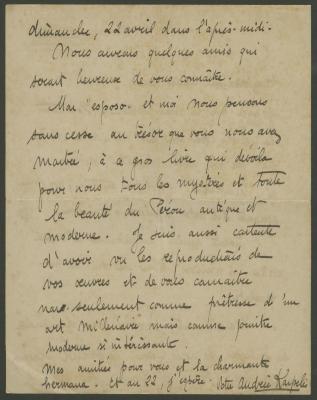 dimanche, 22 avril dans l'après-midi.
Nous aurons quelques amis qui
seront heureux de vous connaître.
Mon "esposo" et moi nous pensons
sans cesse au trésor que vous nous avez
montré, à ce gros livre qui dévoila
pour nous tous les mystères et toute
la beauté du Pérou antique et
moderne. Je suis aussi contente
d'avoir vu les reproductions de
vos œuvres et de vous connaître
non seulement comme prêtresse d'un
art millénaire mais comme peintre
moderne si intéressante.
Mes amitiés pour vous et la charmante
hermana. Et au 22, j'espère. Votre Andrée Karpelès